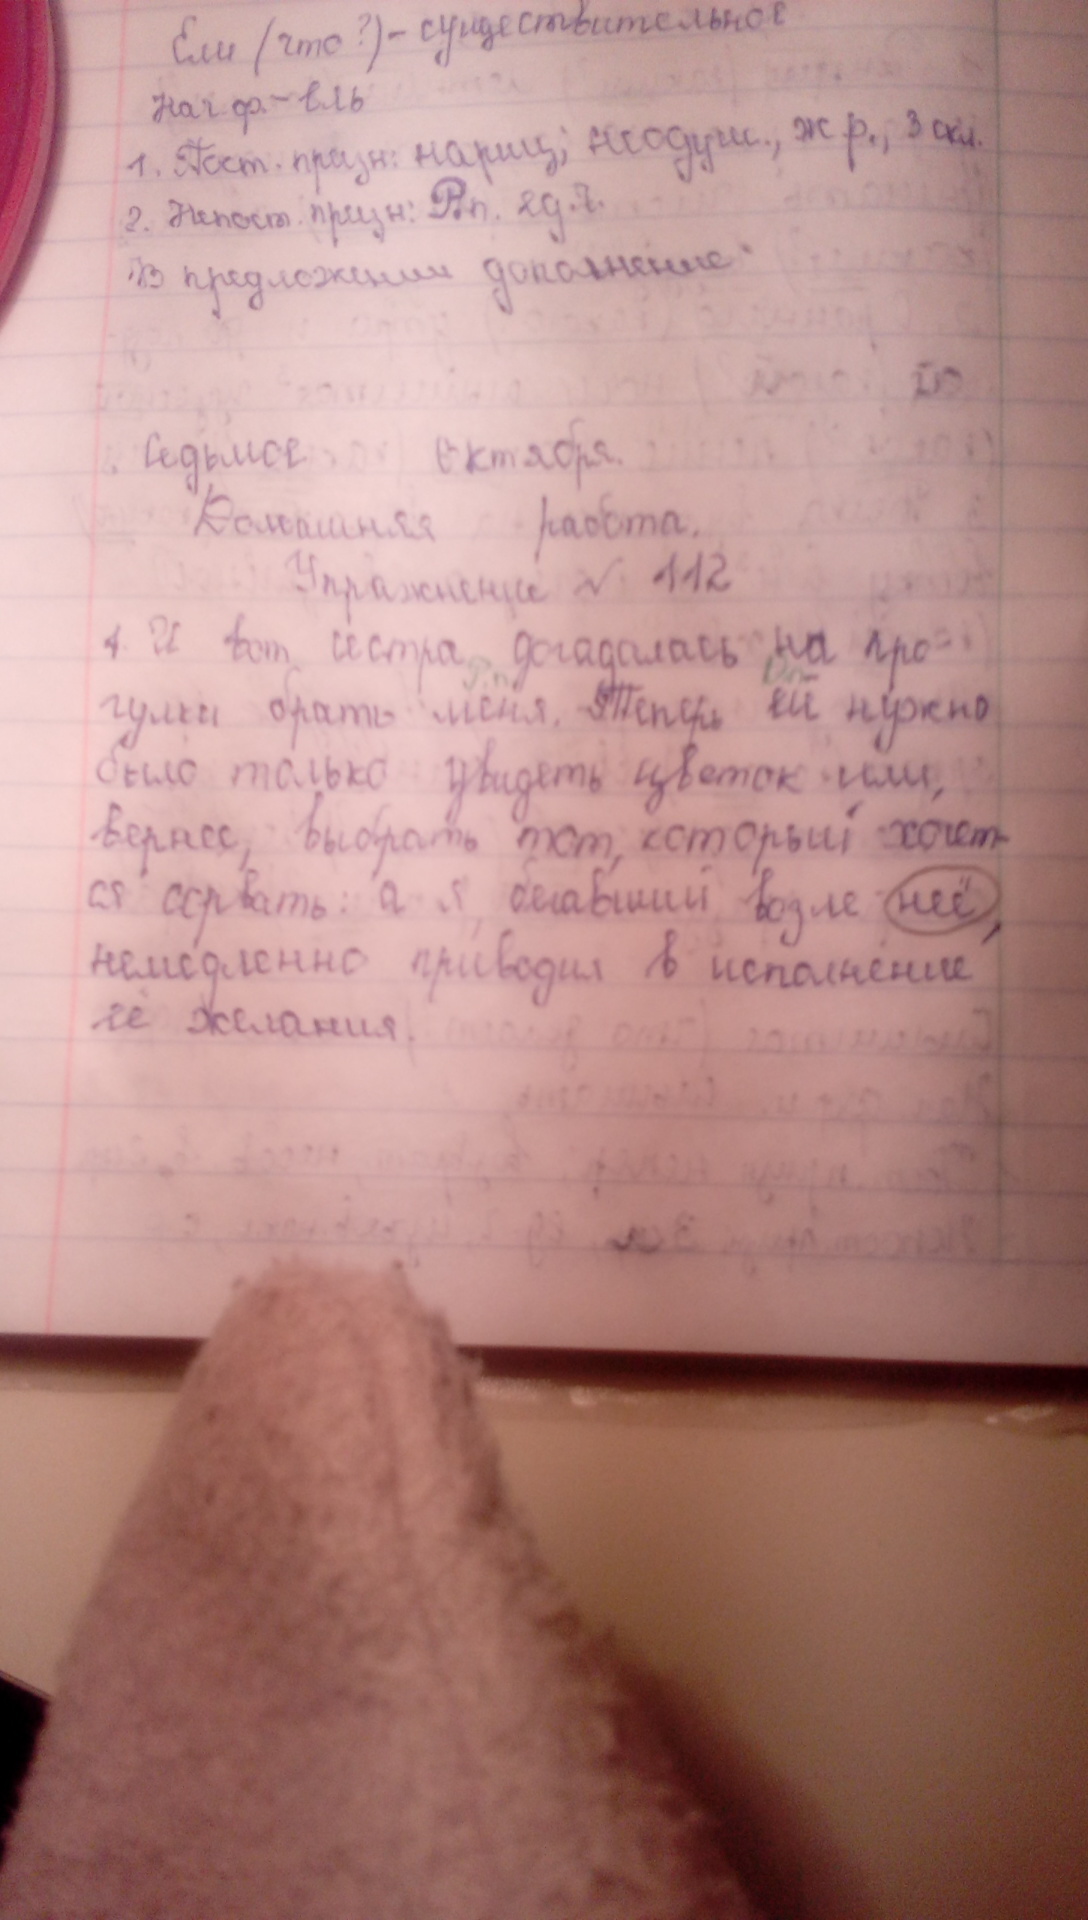 Ели (что?) - существительное
Нач.ф. - ель
1. Пост. призн: нариц; неодуш., ж р., 3 скл.
2. Непост. призн: Р.п. ед.ч.
В предложении дополнение
Седьмое октября.
Домашняя работа.
Упражнение № 112
1. И вот сестра догадалась на про-
Р.п.
гулки брать меня. Теперь ей нужно
было только увидеть цветок или,
вернее, выбрать тот, который хочет-
ся сорвать: а я, бегавший возле неё,
немедленно приводил в исполнение
её желания.